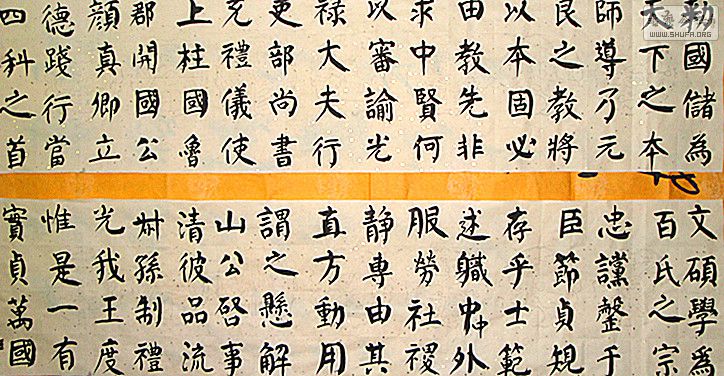 勅國儲為
天下之本
師導乃元
良之教將
以本固必
由教先非
求中賢何
以審諭光
祿大夫行
吏部尚書
充禮儀使
上柱國魯
郡開國公
顏真卿立
德踐行當
四科之首
文碩學為
百氏之宗
忠讜罄于
臣節貞規
存乎士範
述職中外
服勞社稷
靜專由其
直方動用
謂之懸解
山公啓事
清彼品流
叔孫制禮
光我王度
惟是一有
實貞萬國
WWW.SHUFA.ORG